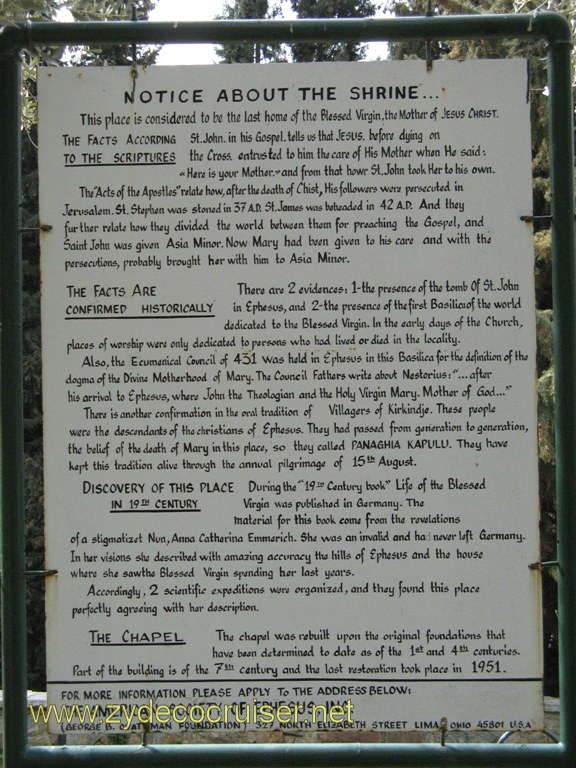 NOTICE ABOUT THE SHRINE...
This place is considered to be the last home of the Blessed Virgin, the Mother of JESUS CHRIST.
THE FACTS ACCORDING St. John. in his Gospel. tells us that JESUS. before dying on
TO THE SCRIPTURES the Cross. entrusted to him the care of His Mother when He said:
"Here is your Mother." and from that howr St. John took Her to his own.
The "Acts of the Apostles" relate how, after the death of Chist, His followers were persecuted in
Jerusalem. St. Stephen was stoned in 37 A.D. St. James was beheaded in 42 A.D. And they
further relate how they divided the world between them for preaching the Gospel, and
Saint John was given Asia Minor. Now Mary had been given to his care and with the
persecutions, probably brought her with him to Asia Minor.
THE FACTS ARE There are 2 evidences: 1-the presence of the tomb Of St. John
CONFIRMED HISTORICALLY in Ephesus, and 2-the presence of the first Basilica of the world
dedicated to the Blessed Virgin. In the early days of the Church,
places of worship were only dedicated to persons who had lived or died in the locality.
Also, the Ecumenical Council of 431 was held in Ephesus in this Basilica for the definition of the
dogma of the Divine Motherhood of Mary. The Council Fathers write about Nestorius: "... after
his arrival to Ephesus, where John the Theologian and the Holy Virgin Mary. Mother of God..."
There is another confirmation in the oral tradition of Villagers of Kirkindje. These people
were the descendants of the christians of Ephesus. They had passed from generation to generation,
the belief of the death of Mary in this place, so they called PANAGHIA KAPULU. They have
kept this tradition alive through the annual pilgrimage of 15th August.
DISCOVERY OF THIS PLACE During the "19th Century book" Life of the Blessed
IN 19TH CENTURY Virgin was published in Germany. The
material for this book come from the revelations
of a stigmatizet Nun, Anna Catherina Emmerich. She was an invalid and had never left Germany.
In her visions she described with amazing accuracy the hills of Ephesus and the house
where she sawthe Blessed Virgin spending her last years.
Accordingly, 2 scientific expeditions were organized, and they found this place
perfectly agreeing with her description.
THE CHAPEL The chapel was rebuilt upon the original foundations that
have been determined to date as of the 1st and 4th centuries.
Part of the building is of the 7th century and the last restoration took place in 1951.
FOR MORE INFORMATION PLEASE APPLY TO THE ADDRESS BELOW:
SOCIETY OF EPHESUS INC.
www.zydecocruiser.net
(GEORGE B. FOUNDATION) 327 NORTH ELIZABETH STREET LIMA, OHIO 45801 U.S.A